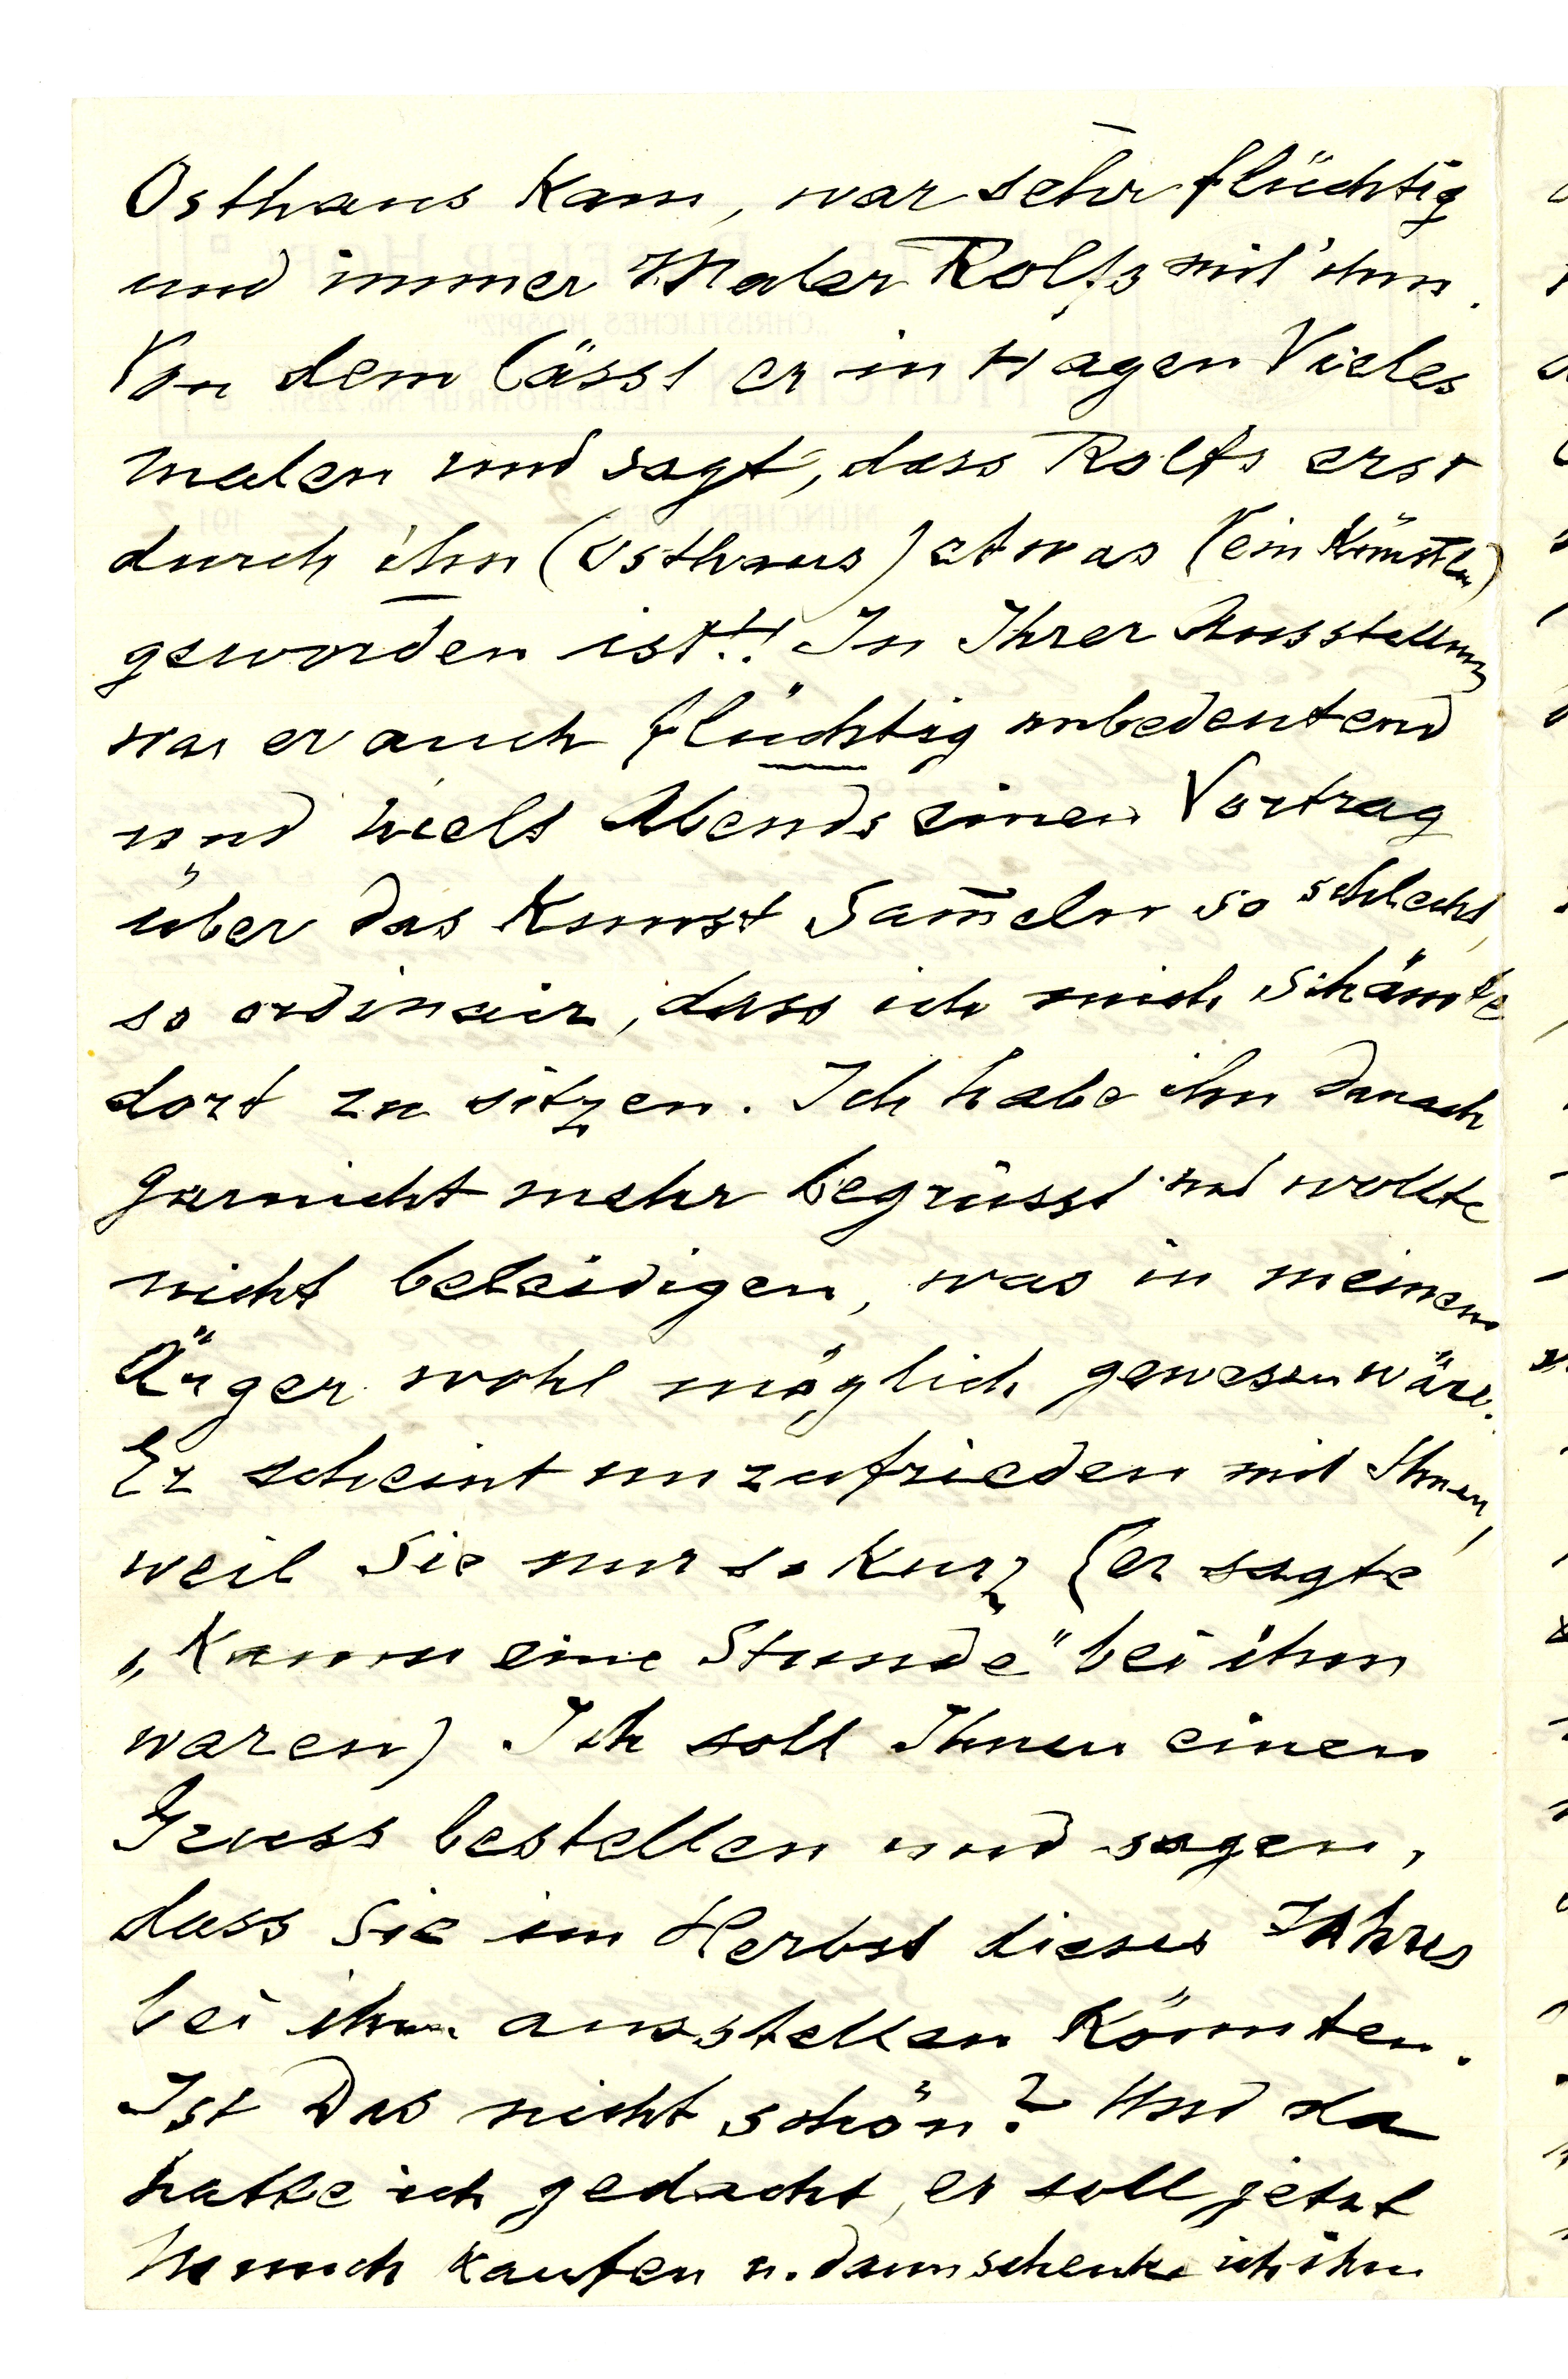 Osthaus kam, war sehr flüchtig
und immer Maler Rolfs mit ihm.
Von dem lässt er in Hagen Vieles
malen und sagt, dass Rolfs erst
durch ihn (Osthaus) etwas (ein Künstler)
geworden ist!! In Ihrer Ausstellung
war er auch flüchtig unbedeutend
und hielt Abends einen Vortrag
über das Kunst Sam̄eln so schlecht,
so ordinair, dass ich mich schämte
dort zu sitzen. Ich habe ihn danach
garnicht mehr begrüsst und wollte
nicht beleidigen, was in meinem
Ärger wohl möglich gewesen wäre.
Er scheint unzufrieden mit Ihnen,
weil Sie nur so kurz (er sagte
„Kaum eine Stunde" bei ihm
waren) Ich soll Ihnen einen
Gruss bestellen und sagen,
dass Sie im Herbst dieses Jahres
bei ihm ausstellen könnten.
Ist Das nicht schön? Und da
hatte ich gedacht, er soll jetzt
kaufen u. dann schenke ich ihm
MÜNCHEN
"CHRISTLICHES HOSPIZ"